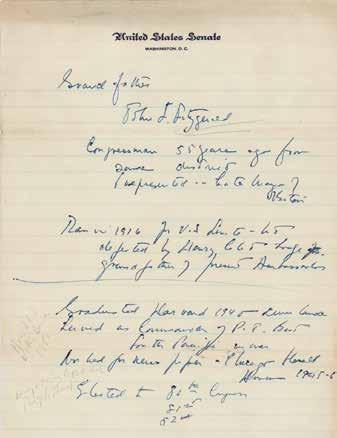 United States Senate
WASHINGTON, D.C.
Grand father
John F. Fitzgerald
Congressman 55 years ago from
same district
I represented -- Late Mayor of
Boston
Ran in 1916 for U.S. Senate - 
defeated by Henry Cabot Lodge
grandfather of present Ambassador
Graduated Harvard 1940
Served as Commander of P.T. Boat
in the Pacific in war
Worked for news paper - Chicago Herald
1945-6
Elected to 80th Congress
81st
82nd